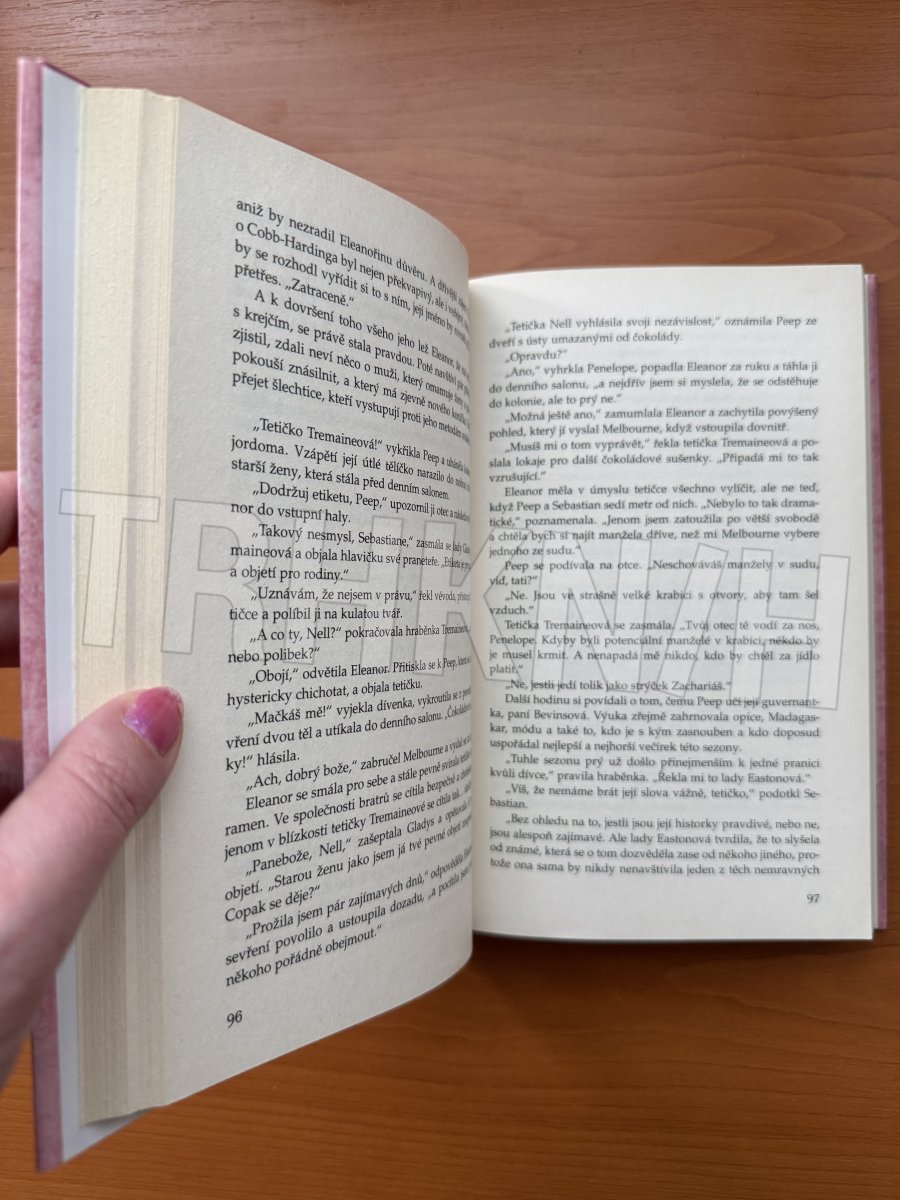 aniž by nezradil Eleanořinu důvěru. A dřívější
o Cobb-Hardinga byl nejen překvapivý, ale i
by se rozhodl vyřídit si to s ním, její jméno by
přetřes. „Zatraceně.“
A k dovršení toho všeho jeho lež Eleanor, že
s krejčím, se právě stala pravdou. Poté navštíví
zjistil, zdali neví něco o muži, který omamuje ženy
pokouší znásilnit, a který má zjevně nového
přejet šlechtice, kteří vystupují proti jeho metodám
„Tetičko Tremaineová!“ vykřikla Peep a uháněla
jordoma. Vzápětí její útlé tělíčko narazilo do
starší ženy, která stála před denním salonem.
„Dodržuj etiketu, Peep,“ upozornil ji otec a
nor do vstupní haly.
„Takový nesmysl, Sebastiane,“ zasmála se lady
maineová a objala hlavičku své praneteře. „Etiketa je
a objetí pro rodiny.“
„Uznávám, že nejsem v právu,“ řekl vévoda,
tičce a políbil ji na kulatou tvář.
„A co ty, Nell?“ pokračovala hraběnka Tremaineová,
nebo polibek?“
„Obojí,“ odvětila Eleanor. Přitiskla se k Peep,
hystericky chichotat, a objala tetičku.
„Mačkáš mě!“ vyjekla dívenka, vykroutila se z
vření dvou těl a utíkala do denního salonu.
ky!“ hlásila.
„Ach, dobrý bože,“ zabručel Melbourne a vydal se
Eleanor se smála pro sebe a stále pevně svírala
ramen. Ve společnosti bratrů se cítila bezpečně a
jenom v blízkosti tetičky Tremaineové se cítila tak...
„Panebože, Nell,“ zašeptala Gladys a opětovala
objetí. „Starou ženu jako jsem já tvé pevné objetí
Copak se děje?“
„Prožila jsem pár zajímavých dnů,“ odpověděla
sevření povolilo a ustoupila dozadu, „a pocítila jsem
někoho pořádně obejmout.“
96
„Tetička Nell vyhlásila svoji nezávislost,“ oznámila Peep ze
dveří s ústy umazanými od čokolády.
„Opravdu?“
„Ano,“ vyhrkla Penelope, popadla Eleanor za ruku a táhla ji
do denního salonu, „a nejdřív jsem si myslela, že se odstěhuje
do kolonie, ale to prý ne.“
„Možná ještě ano,“ zamumlala Eleanor a zachytila povýšený
pohled, který jí vyslal Melbourne, když vstoupila dovnitř.
„Musíš mi o tom vyprávět,“ řekla tetička Tremaineová a po-
slala lokaje pro další čokoládové sušenky. „Připadá mi to tak
vzrušující.“
Eleanor měla v úmyslu tetičce všechno vylíčit, ale ne teď,
když Peep a Sebastian sedí metr od nich. „Nebylo to tak drama-
tické,“ poznamenala. „Jenom jsem zatoužila po větší svobodě
a chtěla bych si najít manžela dříve, než mi Melbourne vybere
jednoho ze sudu.“
Peep se podívala na otce. „Neschováváš manžely v sudu,
viď, tati?“
„Ne. Jsou ve strašně velké krabici s otvory, aby tam šel
vzduch.“
Tetička Tremaineová se zasmála. „Tvůj otec tě vodí za nos,
Penelope. Kdyby byli potenciální manželé v krabici, někdo by
je musel krmit. A nenapadá mě nikdo, kdo by chtěl za jídlo
platit.“
„Ne, jestli jedí tolik jako strýček Zachariáš.“
Další hodinu si povídali o tom, čemu Peep učí její guvernant-
ka, paní Bevinsová. Výuka zřejmě zahrnovala opice, Madagas-
kar, módu a také to, kdo je s kým zasnouben a kdo doposud
uspořádal nejlepší a nejhorší večírek této sezony.
„Tuhle sezonu prý už došlo přinejmenším k jedné pranici
kvůli dívce,“ pravila hraběnka. „Řekla mi to lady Eastonová.“
„Víš, že nemáme brát její slova vážně, tetičko,“ podotkl Se-
bastian.
„Bez ohledu na to, jestli jsou její historky pravdivé, nebo ne,
jsou alespoň zajímavé. Ale lady Eastonová tvrdila, že to slyšela
od známé, která se o tom dozvěděla zase od někoho jiného, pro-
tože ona sama by nikdy nenavštívila jeden z těch nemravných
97
TRHKNIH